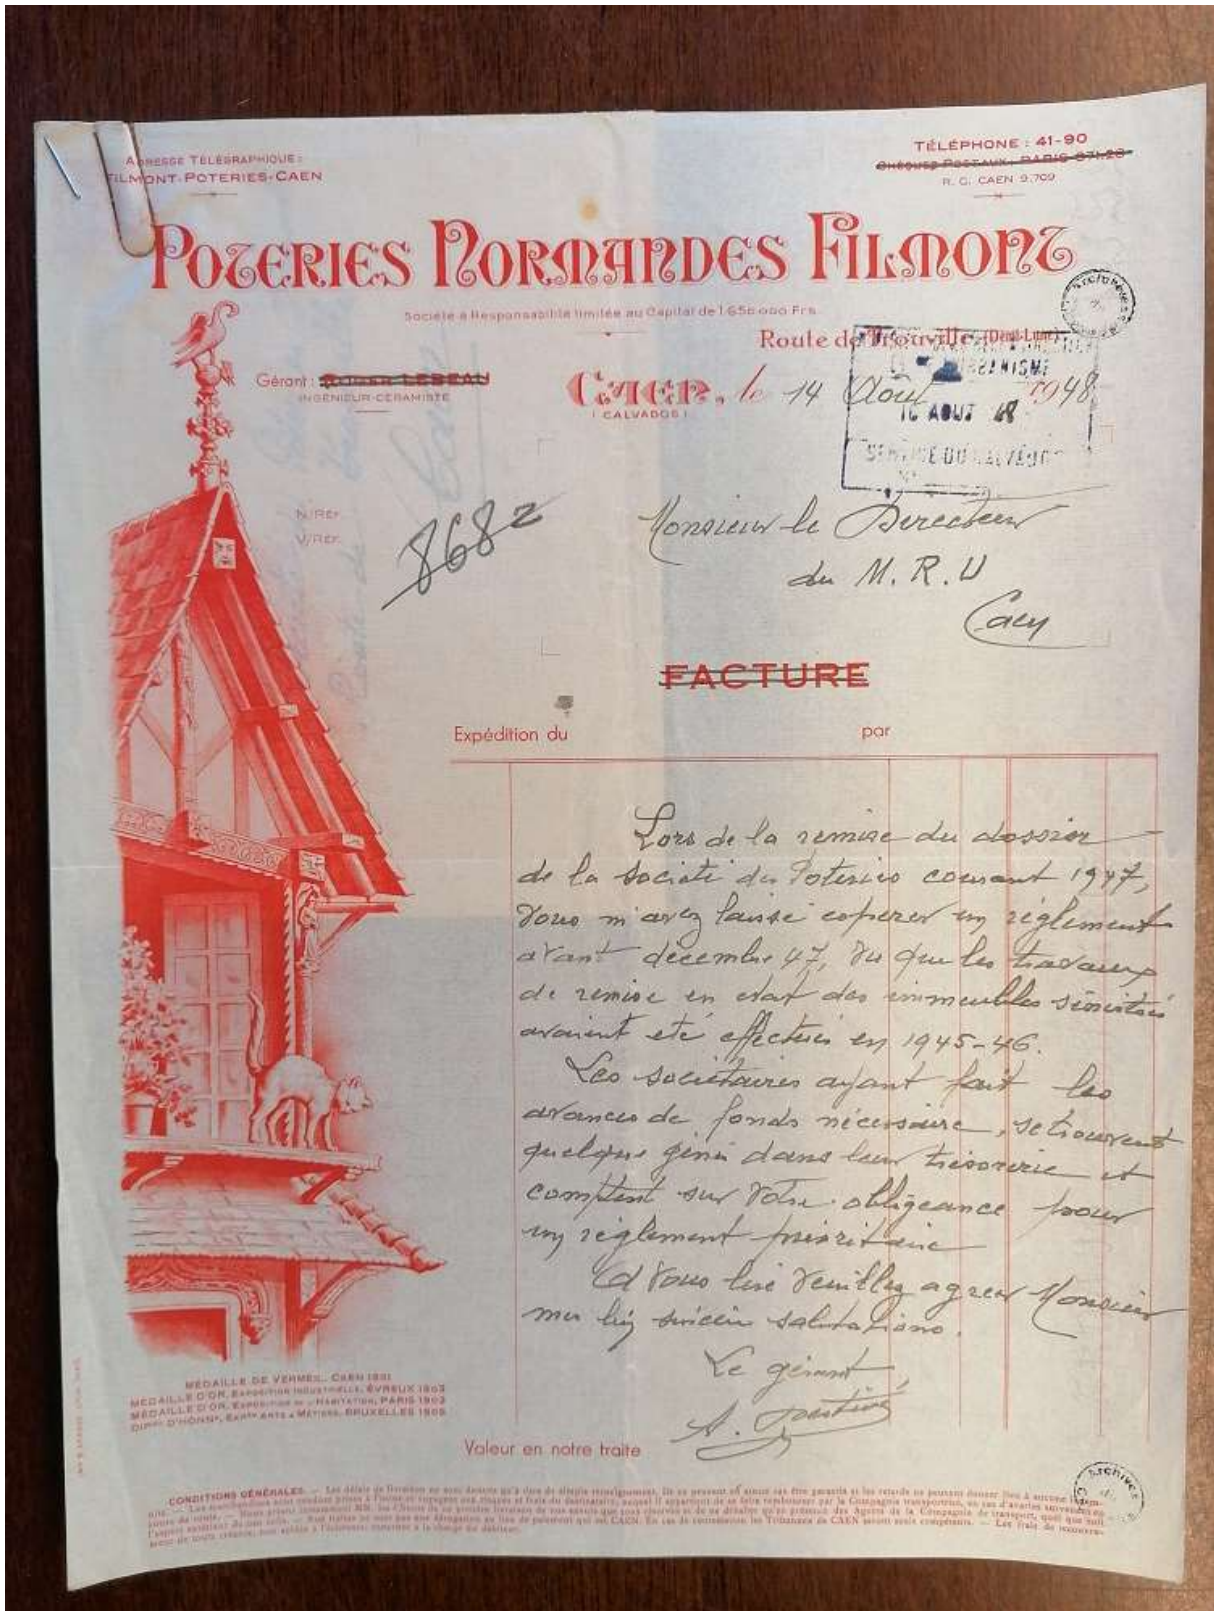 ADRESSE TÉLÉGRAPHIQUE :
FILMONT-POTERIES-CAEN
TÉLÉPHONE : 41-90
CHÈQUES POSTAUX : PARIS 871.26
R. C. CAEN 9.709
POTERIES NORMANDES FILMONT
Société à Responsabilité limitée au Capital de 1.650.000 Frs
Route de Trouville (Demi-Lune)
Gérant : ROGER LEBEAU
INGÉNIEUR-CÉRAMISTE
CAEN, le 14 Août 1948
(CALVADOS)
16 AOUT 48
N/RÉF.
V/RÉF.
8682
Monsieur le Directeur
du M. R. U
Caen
FACTURE
Expédition du par
Lors de la remise du dossier
de la société des Poteries courant 1947,
vous m'avez laissé espérer un règlement
avant décembre 47, vu que les travaux
de remise en état des immeubles sinistrés
avaient été effectués en 1945-46.
Les sociétaires ayant fait les
avances de fonds nécessaire, se trouvent
quelque gênés dans leur trésorerie et
comptent sur votre obligeance pour
un règlement prioritaire
A vous lire veuillez agréer Monsieur
mes sincères salutations.
Le gérant,
A.
MÉDAILLE DE VERMEIL, CAEN 1901
MÉDAILLE D'OR, EXPOSITION INDUSTRIELLE, ÉVREUX 1903
MÉDAILLE D'OR, EXPOSITION DE L'HABITATION, PARIS 1903
DIPme D'HONNr, EXPon ARTS & MÉTIERS, BRUXELLES 1905
Valeur en notre traite
Archives
CONDITIONS GÉNÉRALES. — Les délais de livraison ne sont donnés qu'à titre de simple renseignement.